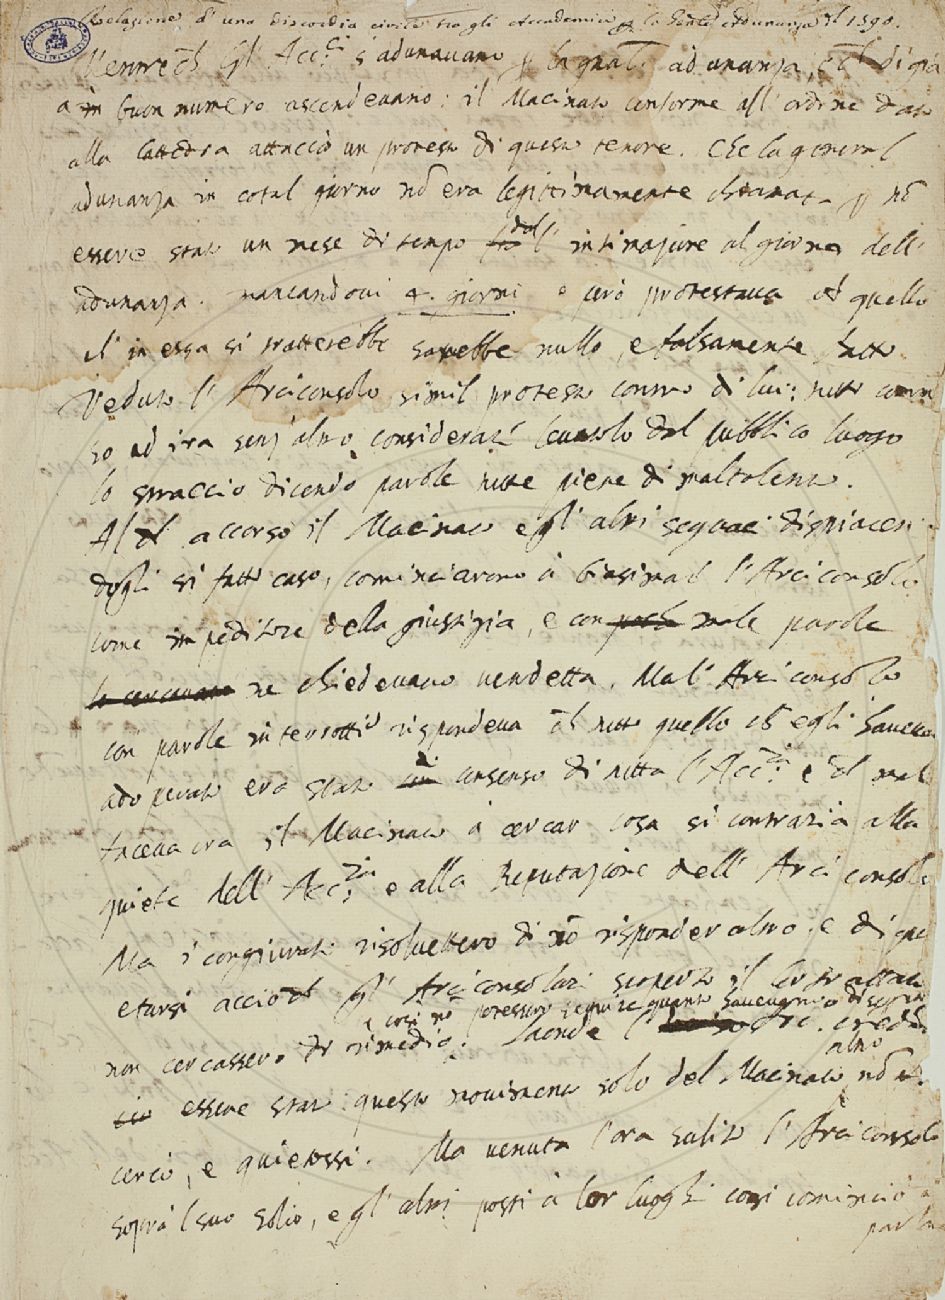 Relazione d'una discordia civile tra gli Accademici p la Gñle Adunanza il 1590.
Mentre ch̃ gl' Acc.ci s'adunavano p la gñal adunanza, e ch̃ di gia
a in buon numero ascendevano; il Macinato conforme all'ordine dato
alla Cattedra attaccò un protesto di questo tenore. Che la general
adunanza in cotal giorno nõ era legitimamente chiamata p nõ
essere stato un mese di tempo dal l'intimazione al giorno dell'
adunanza. mancandovi 4. giorni e però protestava ch̃ quello
ch'in essa si tratterebbe sarebbe nullo, e falsamente fatto.
Veduto l'Arciconsolo simil protesto contro di lui; tutto comm
so ad ira senz'altro considerar levatolo dal pubblico luogo
lo stracciò dicendo parole tutte piene di maltalento.
Al ch̃ accorso il Macinato e gl'altri seguaci dispiacen
dogli si fatto caso, cominciarono à biasimar l'Arciconsolo
come impeditore della giustizia, e con poch male parole
lo cercavano ne chiedevano vendetta. Ma l'Arciconsolo
con parole interrotte rispondeva ch̃ tutto quello ch̃ egli haveva
adoperato era stato di consenso di tutta l'Acc.ia e ch̃ mal
faceva ora il Macinato à cercar cosa si contraria alla
quiete dell'Acc.ia e alla Reputazione dell'Arciconsolo
Ma i congiurati risolvettero di nõ risponder altro, e di qui
etarsi acciò ch̃ gl'Arciconsolari scoperto il lor trattato
e così nõ potessero seguire quanto havevano disegnato
non cercassero di rimedio; Laonde l' Arc. crede
altro
ciò essere stato questo movimento solo del Macinato nõ
cercò, e quietossi. Ma venuta l'ora salito l'Arciconsolo
sopra 'l suo solio, e gl'altri posti à lor luoghi così cominciò à
parlare